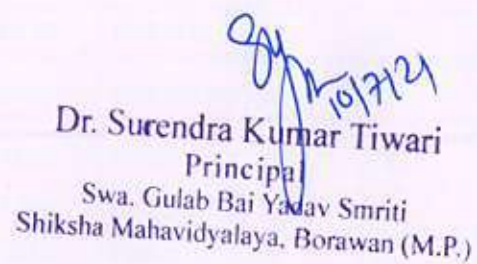 10/7/21
Dr. Surendra Kumar Tiwari
Principal
Swa. Gulab Bai Yadav Smriti
Shiksha Mahavidyalaya, Borawan (M.P.)